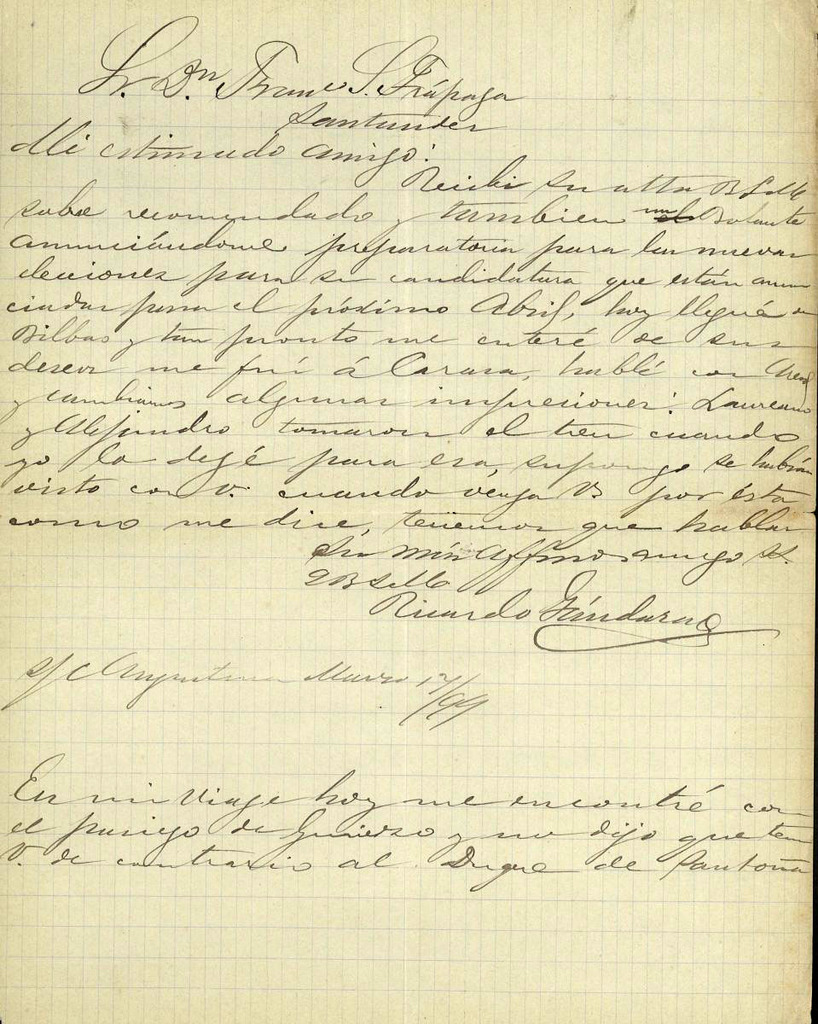 Sr. Dn. Franco S. Trápaga
Santander
Mi estimado amigo:
Recibi su atta
sobre recomendado y tambien un Bolante
anunciándome preparatoria para las nuevas
elecciones para su candidatura que están anun
ciadas para el próximo Abril, hoy llegué de
Bilbao y tan pronto me enteré de sus
deseos me fuí á Carasa, hablé con
y cambiamos algunas impresiones: Laureano
y Alejandro tomaron el tren cuando
yo lo dejé para esa, supongo se habrán
visto con V. cuando venga V. por ésta
como me dice, tenemos que hablar
Su más Affmo amigo S.S.
Ricardo Gándara
s/c Marzo 17/99
En mi viaje hoy me encontré con
el pasiego de y me dijo que tenia
V. de contrario al Duque de Santoña